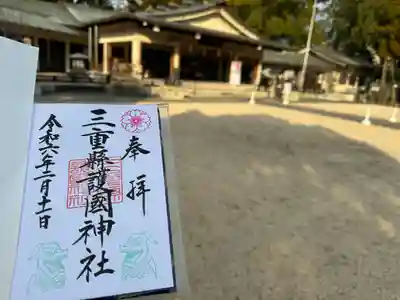 奉拝
三重縣護國神社
令和六年二月十一日